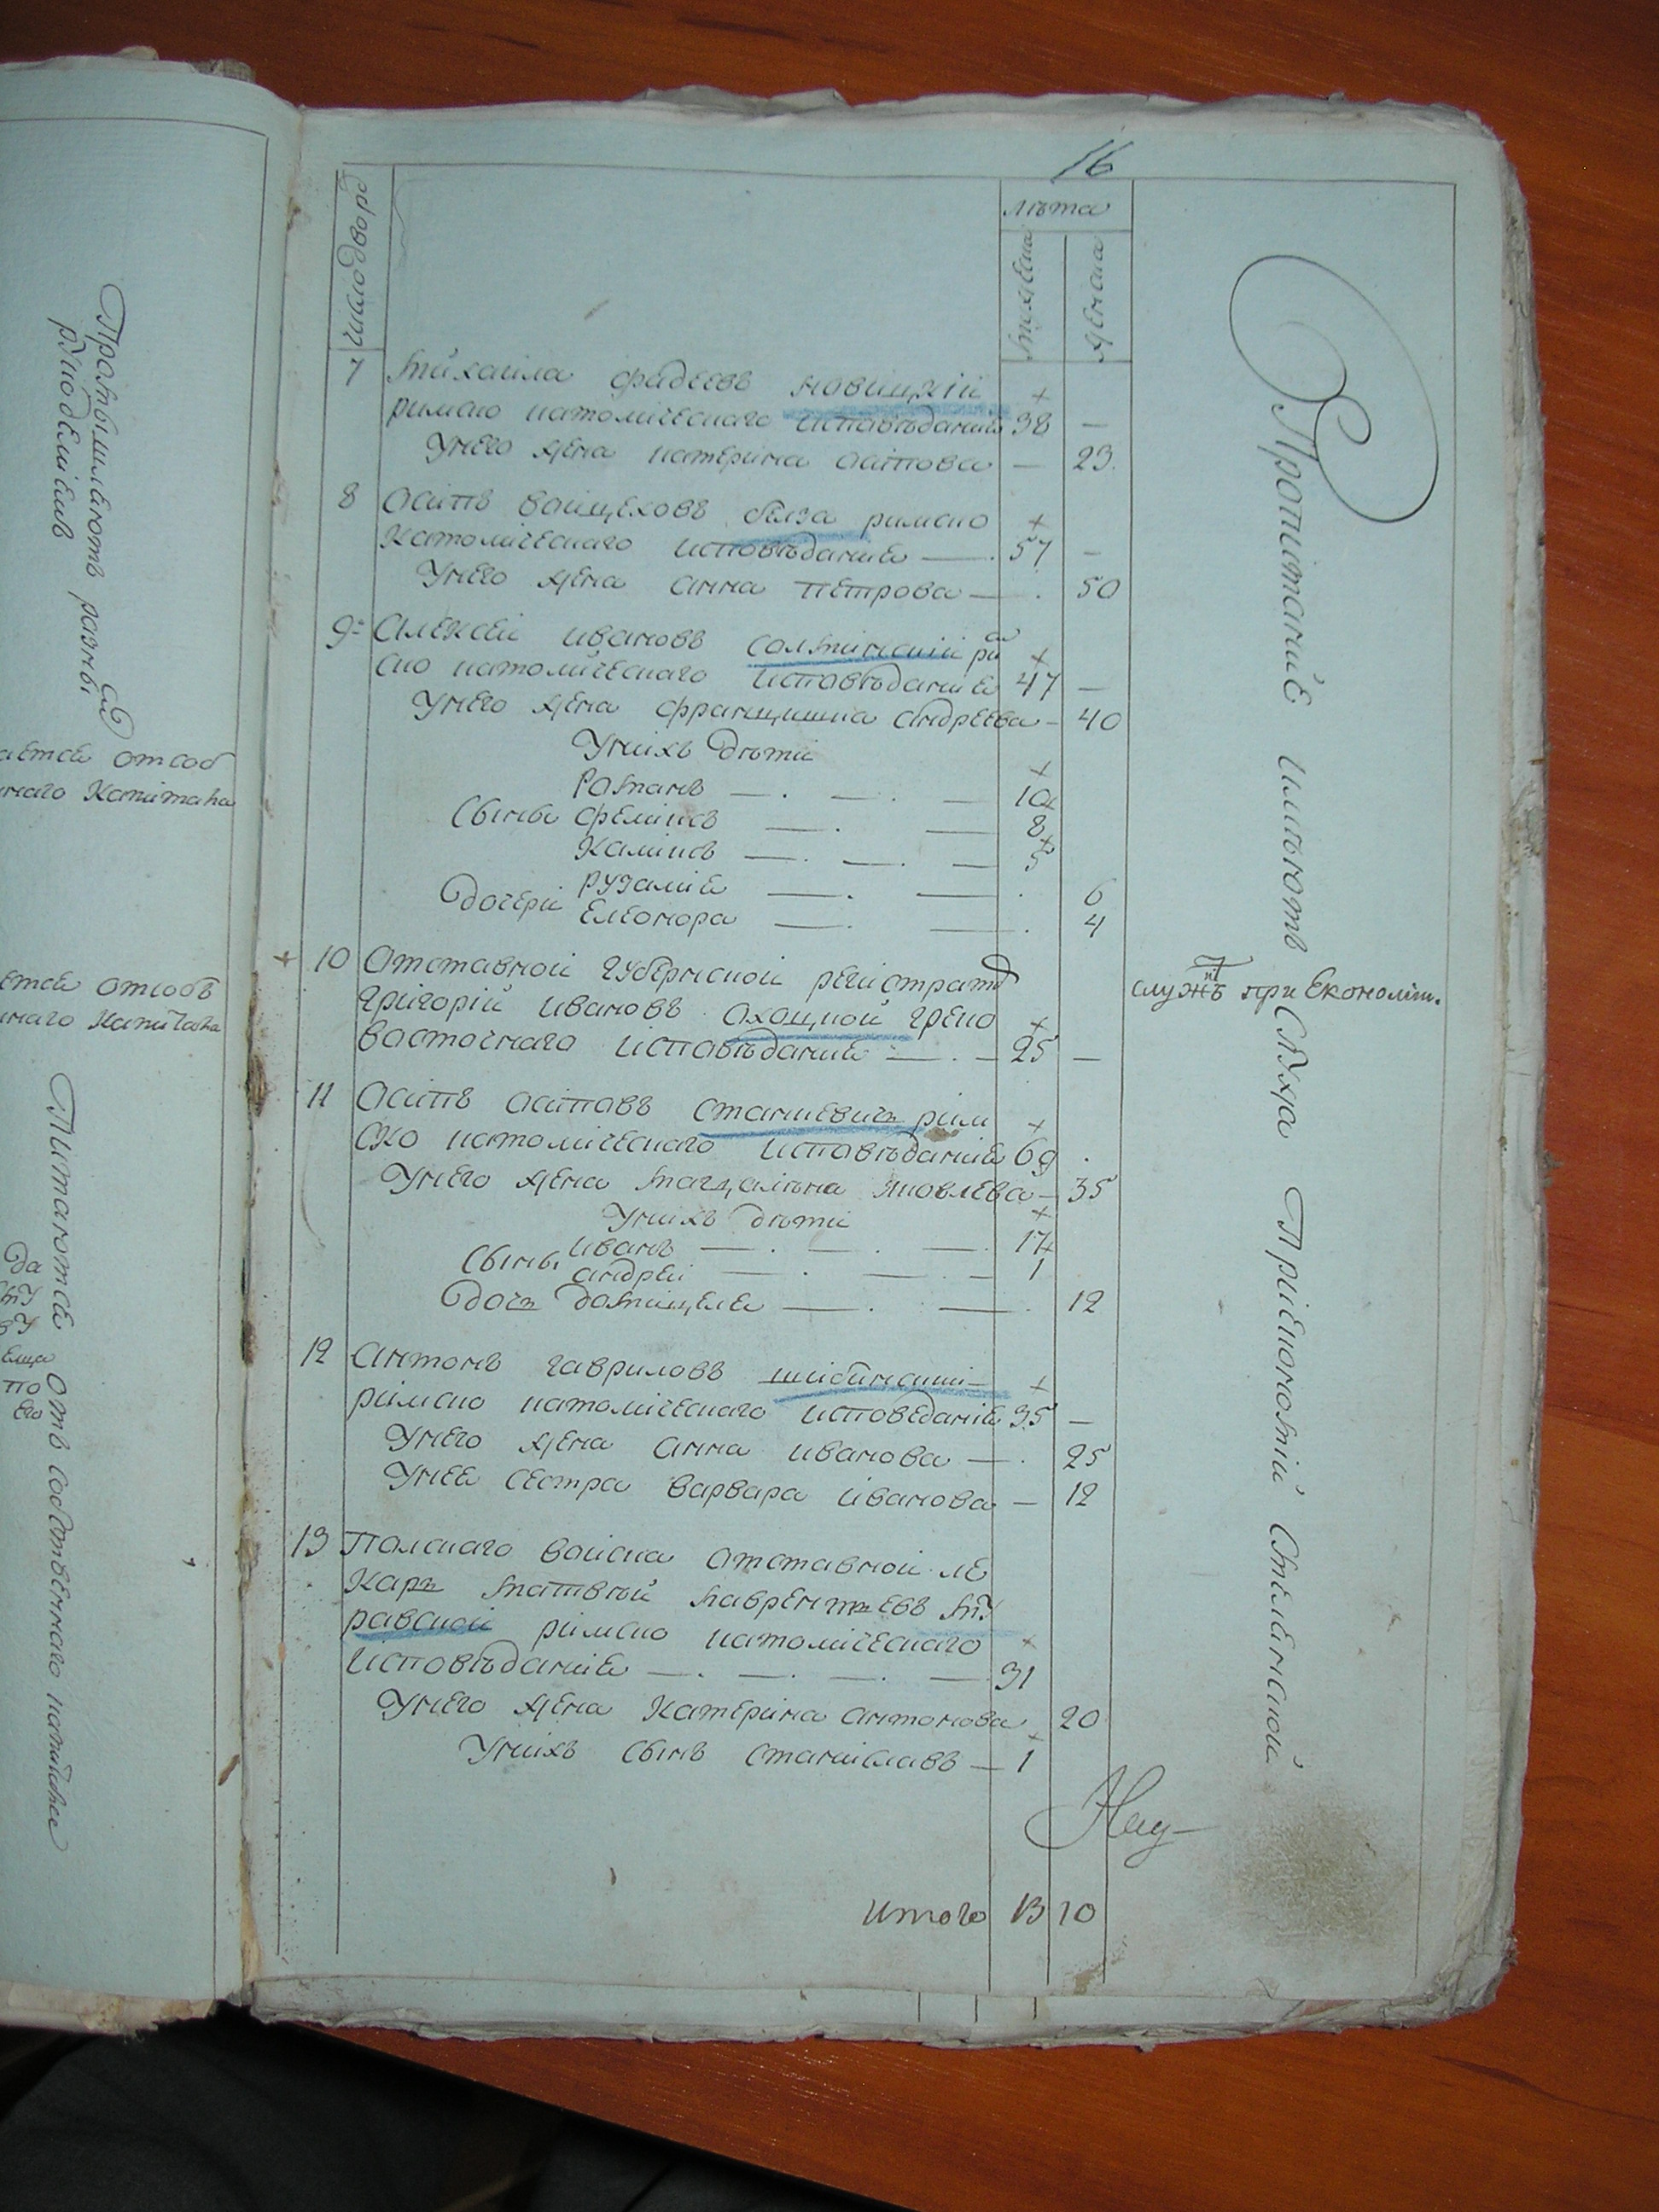 16
число дворѡ
лѣта
мужеска
женска
7 михаила фадеевъ новицкій
римско католическаго исповѣданиѧ 38 —
Унего жена катерина осипова — 23.
8 Осипъ воицеховъ бѣлза римско
Католическаго исповѣданиѧ — 57 —
Унего жена анна петрова — . 50
9 Алексеи ивановъ солтинскіи рим
ско католическаго исповѣданиѧ 47 —
Унего жена францишка андреева — 40
Унихъ дѣтіи
Романъ — . — . — 10
Сыны феликсъ — . — 8
Каликсъ — . — . — 5
Дочери рузалиѧ — . — . 6
Елеонора — . — . 4
10 Отставнои губернскои регистратѡ
григорій ивановъ охоцкой греко
восточнаго исповѣданиѧ — . — 25 —
служ при Економіи.
11 Осипъ осиповъ станкевичъ рим
ско католическаго исповѣданиѧ 69 .
Унего жена магдалѣна яковлева — 35
Унихъ дѣтіи
Сыны иванъ — . — . — . 17
андреи — . — . — 1
дочъ домицелѧ — . — . 12
12 антонъ гавриловъ шибинскии
римско католическаго исповеданиѧ 35 —
Унего жена анна иванова — . 25
Унее сестра варвара иванова — 12
13 Полскаго воиска отставнои ле
каръ матвѣй лаврентъевъ му
равскои римско католическаго
исповѣданиѧ — . — . — . — 31
Унего жена катерина антонова 20
Унихъ сынъ станиславъ — 1
Итого 13 10
Пропитаниѧ имѣютъ
Промышляютъ разны
рукодѣліемъ
аетсѧ отсоб
ннаго Капитала
етсѧ отсобъ
ннаго Капитала
Питаютсѧ отъ собственнаго капитала
да
ему
по
его